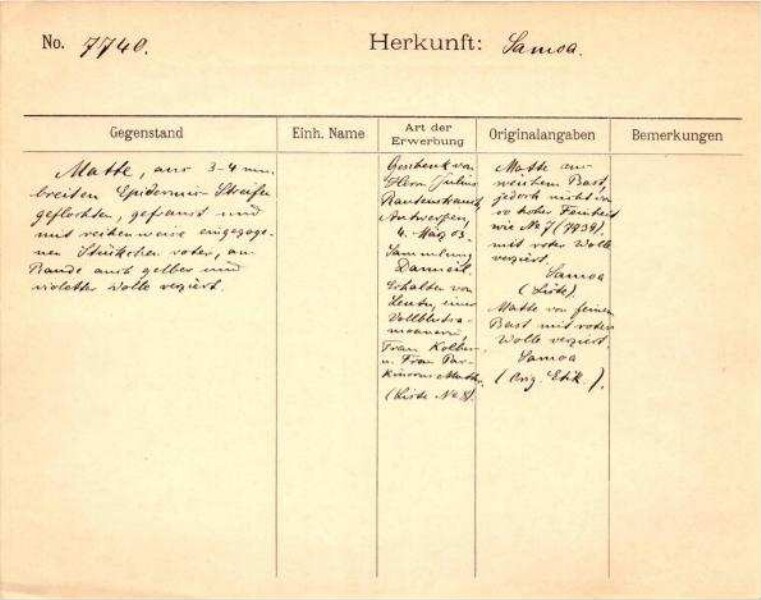 No. 7740.
Herkunft: Samoa.
Gegenstand
Einh. Name
Art der
Erwerbung
Originalangaben
Bemerkungen
Matte, aus 3-4 mm.
breiten Epidermis-Streifen
geflochten, gefranst und
mit reihenweise eingezoge-
nen Stückchen roter, am
Rande auch gelber und
violetter Wolle verziert.
Geschenk von
Herrn Julius
Rautenstrauch,
Antwerpen,
4. März 03.
Sammlung
Danneil.
Erhalten von
einer
Vollblutsa-
moanerin,
Frau Kolbe
u. Frau Par-
kinsons Mutter.
(Liste No 8).
Matte aus
weichem Bast,
jedoch nicht von
so hoher Feinheit
wie No 7 (7739).
mit roter Wolle
verziert.
Samoa
(Liste).
Matte von feinem
Bast mit roter
Wolle verziert.
Samoa
(Orig. Etik.).